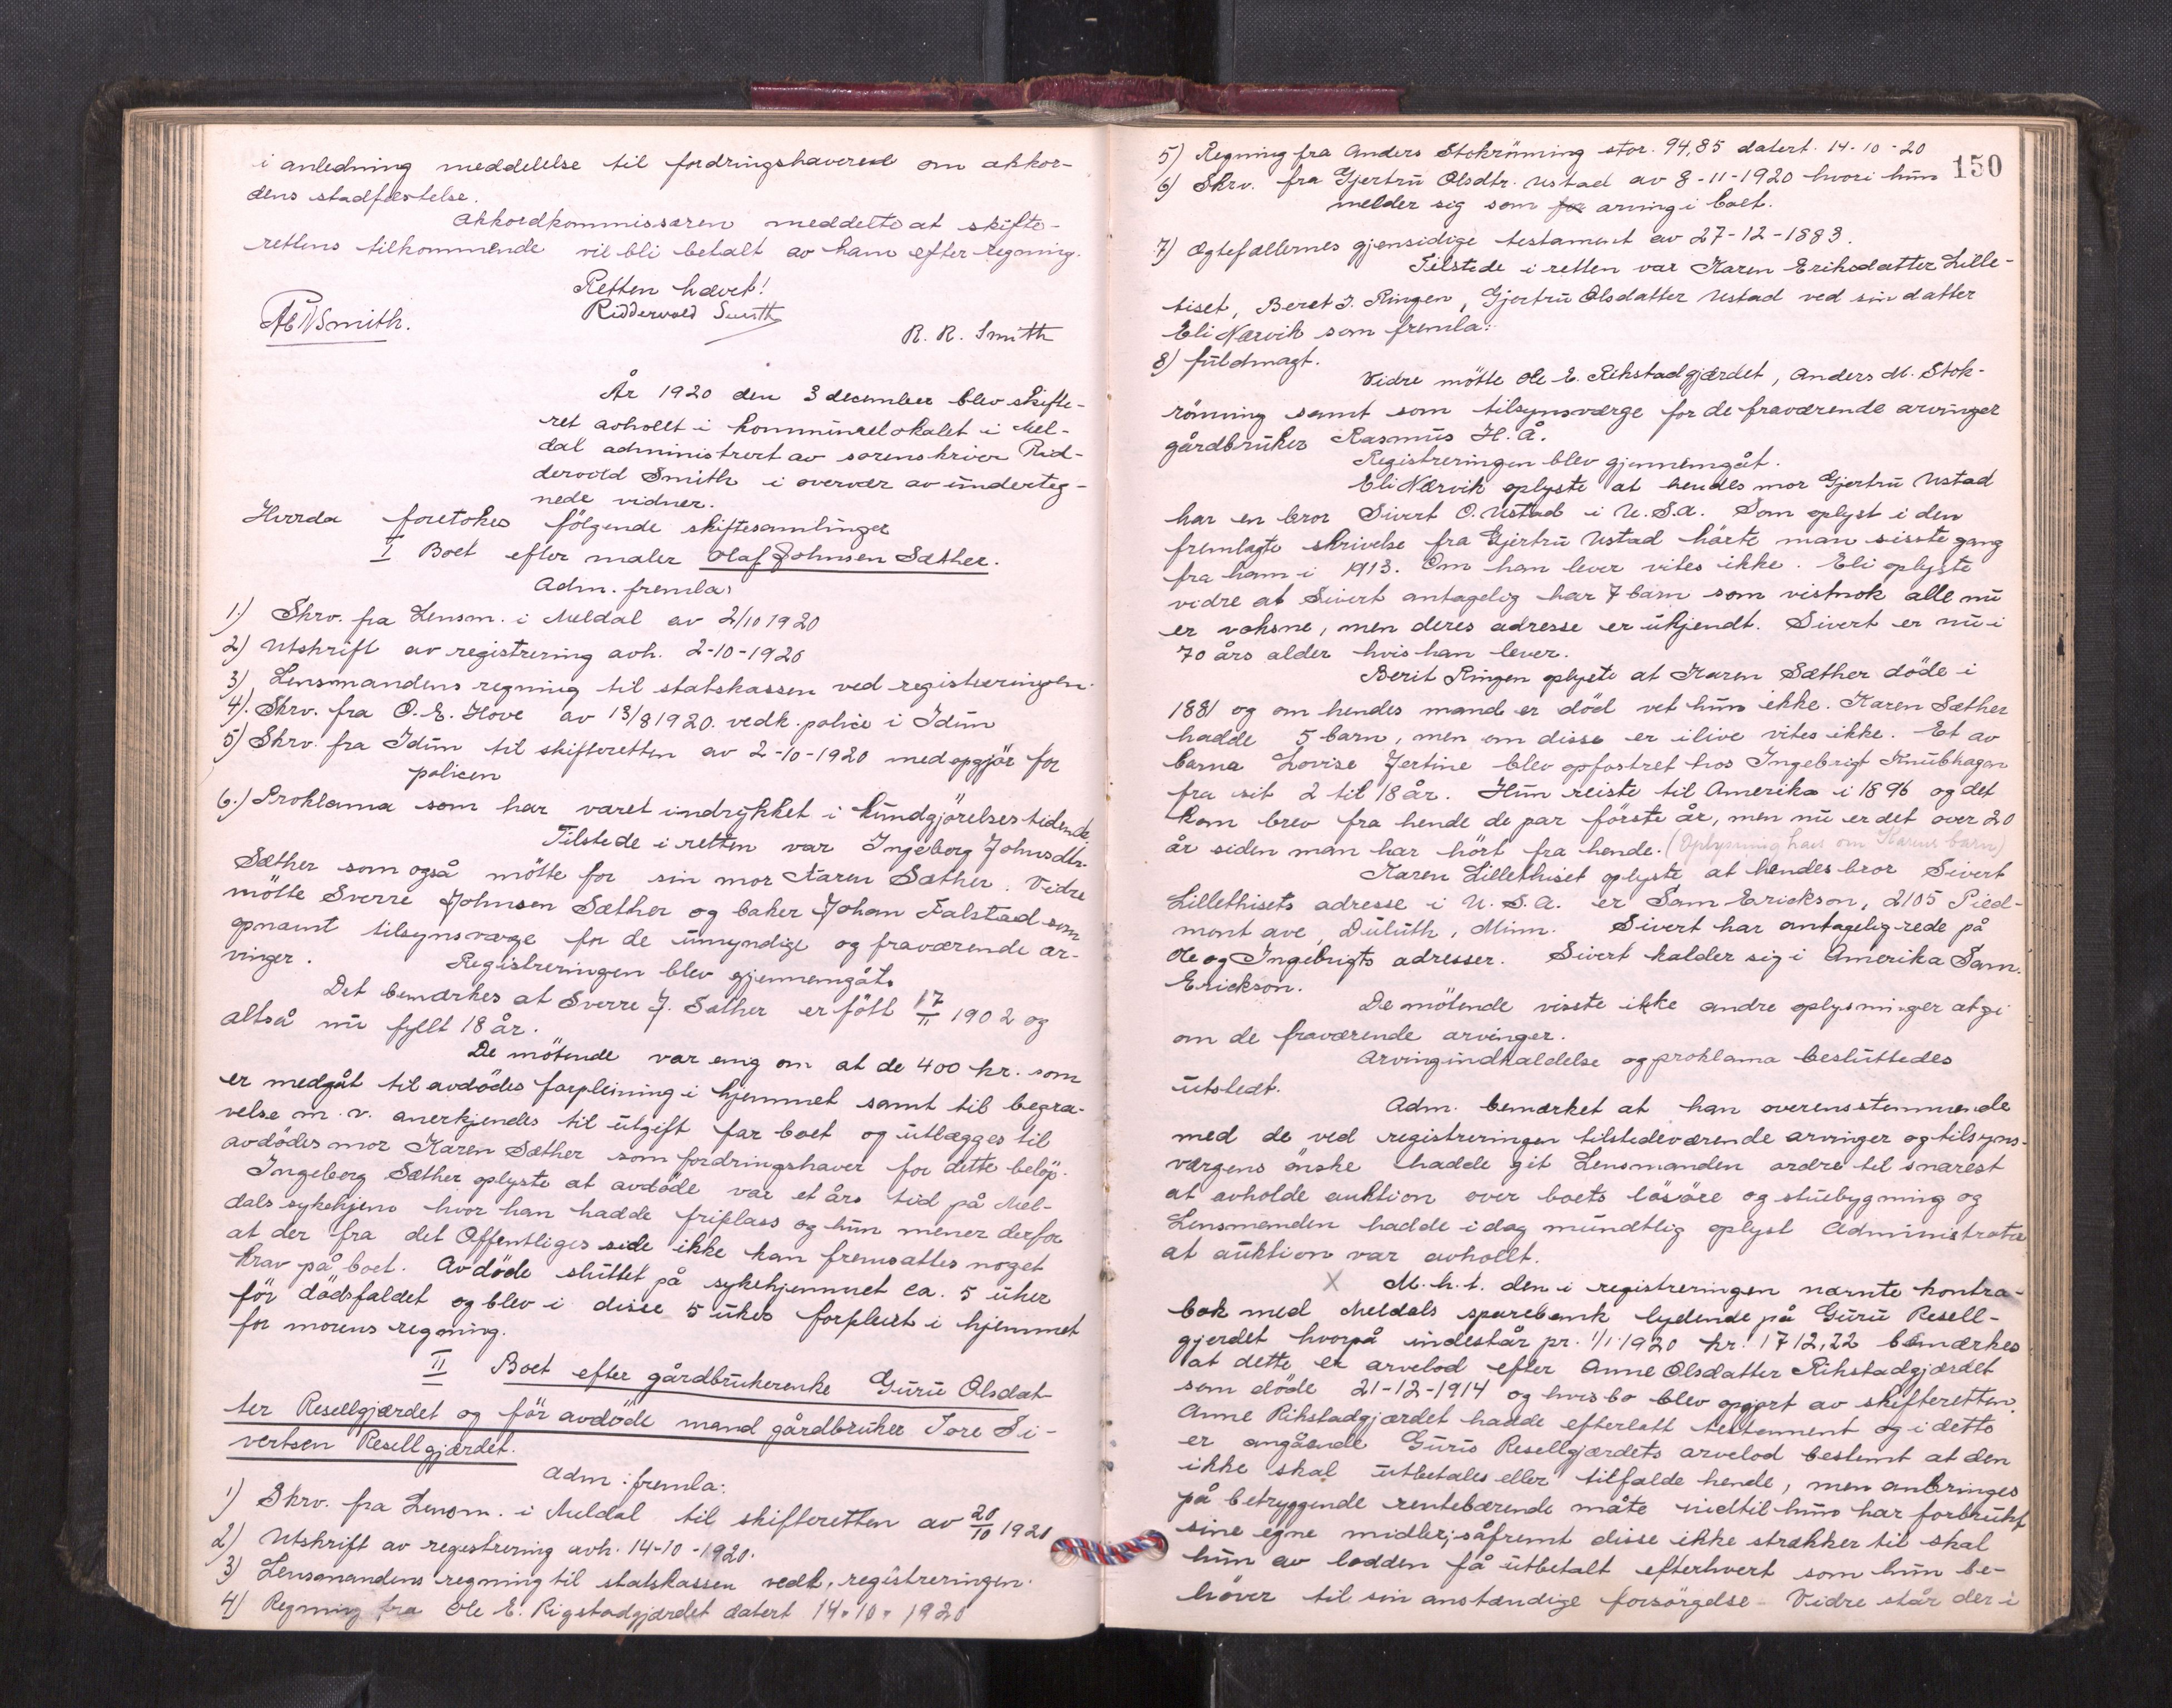 i anledning meddelelse til fordringshaverne om akkor-
dens stadfæstelse.
Akkordkommissæren meddelte at skifte-
rettens tilkommende vil bli betalt av ham efter regning.
Retten hævet!
Riddervold Smith
R. R. Smith
År 1920 den 3 december blev skifte-
ret avholdt i kommunelokalet i Mel-
dal administrert av sorenskriver Rid-
dervold Smith i overvær av underteg-
nede vidner.
Hvorda foretokes følgende skiftesamlinger
I Boet efter maler Olaf Johnsen Sæther.
Adm. fremla:
1.) Skrv. fra Lensm. i Meldal av 2/10 1920
2) Utskrift av registrering avh. 2-10-1920
3) Lensmandens regning til statskassen ved registreringen.
4). Skrv. fra O. E. Hove av 13/8 1920. vedk. police i Idun
5) Skrv. fra Idun til skifteretten av 2-10-1920 med opgjör for
policen
6.) Proklama som har været indrykket i kundgjörelsestidende
Tilstede i retten var Ingeborg Johnsdtr.
Sæther som også mötte for sin mor Karen Sæther. Vidre
mötte Sverre Johnsen Sæther og baker Johan Falstad som
opnævnt tilsynsværge for de umyndige og fraværende ar-
vinger.
Registreringen blev gjennemgåt.
Det bemærkes at Sverre J. Sæther er född 17/11 1902 og
altså nu fyllt 18 år.
De mötende var enig om at de 400 kr. som
er medgåt til avdödes forpleining i hjemmet samt til begra-
velse m. v. anerkjendes til utgift for boet og utlægges til
avdödes mor Karen Sæther som fordringshaver for dette belöp.
Ingeborg Sæther oplyste at avdöde var et års tid på Mel-
dals sykehjem hvor han hadde friplass og hun mener derfor
at der fra det Offentliges side ikke kan fremsættes noget
krav på boet. Avdöde sluttet på sykehjemmet ca. 5 uker
för dödsfaldet og blev i disse 5 uker forpleiet i hjemmet
for morens regning.
II Boet efter gårdbrukerenke Guru Olsdat-
ter Resellgjærdet og för avdöde mand gårdbruker Tore Si-
vertsen Resellgjærdet.
Adm. fremla:
1) Skrv. fra Lensm. i Meldal til skifteretten av 20/10 1920
2) Utskrift av registrering avh. 14-10-1920.
3) Lensmandens regning til statskassen vedk. registreringen.
4) Regning fra Ole E. Rigstadgjærdet datert 14-10-1920
150
5) Regning fra Anders Stokrönning stor. 94,85 datert 14-10-20
6) Skrv. fra Gjertru Olsdtr. Ustad av 8-11-1920 hvori hun
melder sig som arving i boet.
7) Ægtefællernes gjensidige testament av 27-12-1883.
Tilstede i retten var Karen Eriksdatter Lille-
tiset, Beret J. Ringen, Gjertru Olsdatter Ustad ved sin datter
Eli Nærvik som fremla:
8) fuldmagt.
Vidre mötte Ole E. Rikstadgjærdet, Anders M. Stok-
rönning samt som tilsynsværge for de fraværende arvinger
gårdbruker Rasmus H. Å.
Registreringen blev gjennemgåt.
Eli Nærvik oplyste at hendes mor Gjertru Ustad
har en bror Sivert O. Ustad i U. S. A. Som oplyst i den
fremlagte skrivelse fra Gjertru Ustad hörte man sisste gang
fra ham i 1913. Om han lever vites ikke. Eli oplyste
vidre at Sivert antagelig har 7 barn som vistnok alle nu
er voksne, men deres adresse er ukjendt. Sivert er nu i
70 års alder hvis han lever.
Berit Ringen oplyste at Karen Sæther döde i
1881 og om hendes mand er död vet hun ikke. Karen Sæther
hadde 5 barn, men om disse er ilive vites ikke. Et av
barna Lovise Jertine blev opfostret hos Ingebrigt Knubhagen
fra sit 2 til 18 år. Hun reiste til Amerika i 1896 og det
kom brev fra hende de par förste år, men nu er det over 20
år siden man har hört fra hende. (Oplysning haes om Karens barn)
Karen Lillethiset oplyste at hendes bror Sivert
Lillethisets adresse i U. S. A. er Sam Erickson, 2105 Pied-
mont ave, Duluth, Minn. Sivert har antagelig rede på
Ole og Ingebrigts adresser. Sivert kalder sig i Amerika Sam.
Erickson.
De mötende visste ikke andre oplysninger at gi
om de fraværende arvinger.
Arvingindkaldelse og proklama besluttedes
utstedt.
Adm. bemærket at han overensstemmende
med de ved registreringen tilstedeværende arvinger og tilsyns-
værgens önske hadde git Lensmanden ordre til snarest
at avholde auktion over boets lösöre og stuebygning og
Lensmanden hadde idag mundtlig oplyst Administrator
at auktion var avholdt.
X M. h. t. den i registreringen nævnte kontra-
bok med Meldals sparebank lydende på Guru Resell-
gjerdet hvorpå indestår pr. 1/1 1920 kr. 1712,22 bemærkes
at dette er arvelod efter Anne Olsdatter Rikstadgjærdet
som döde 21-12-1914 og hvis bo blev opgjort av skifteretten.
Anne Rikstadgjærdet hadde efterlatt testament og i dette
er angående Gurus Resellgjærdets arvelod bestemt at den
ikke skal utbetales eller tilfalde hende, men anbringes
på betryggende rentebærende måte indtil hun har forbrukt
sine egne midler; såfremt disse ikke strækker til skal
hun av lodden få utbetalt efterhvert som hun be-
höver til sin anstændige forsörgelse - Vidre står der i